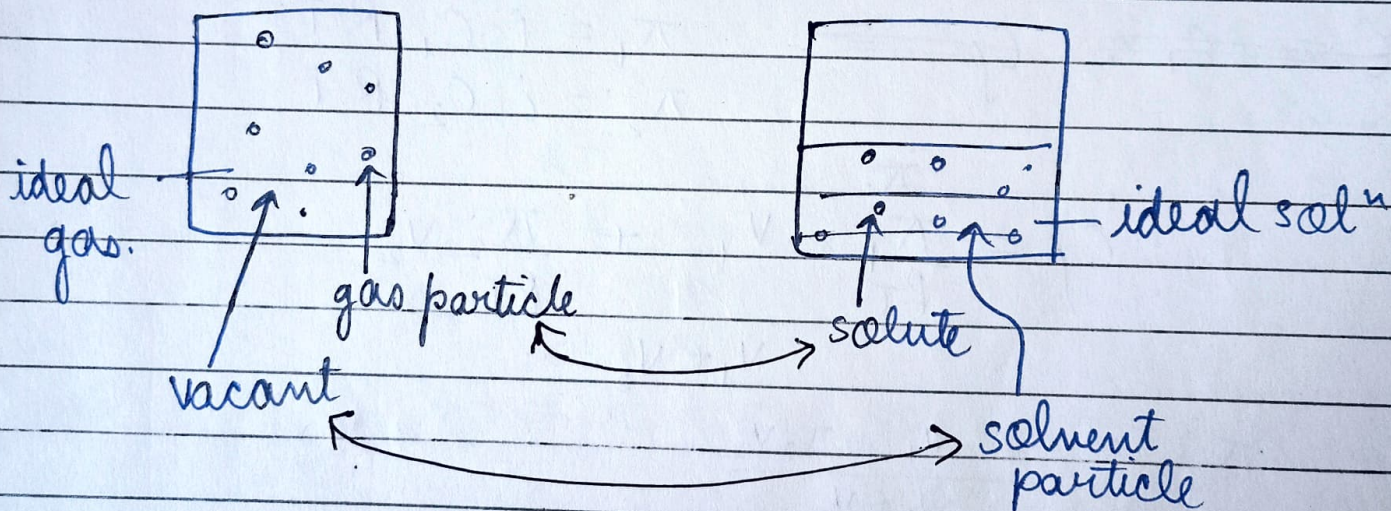 ideal
gas.
gas particle
vacant
ideal solⁿ
solute
solvent
particle